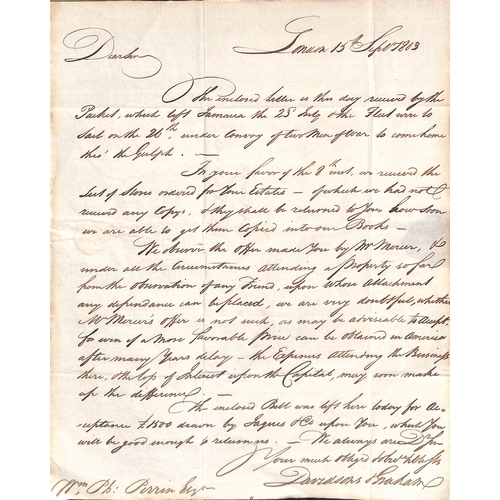 London 15th Septr 1803
Dear Sir
The enclosed letter is this day received by the
Packet, which left Jamaica the 25 July & the Fleet were to
Sail on the 26th, under Convoy of two Men of War to come home
thro' the Gulph. —
In your favor of the 8th inst, we received the
List of Stores ordered for Your Estates — of which we had not
received any Copy, & they shall be returned to You how soon
we are able to get them Copied into our Books —
We observe the offer made You by Mr Mercer, &
under all the Circumstances Attending a Property so far
from the Observation of any Friend, upon whose Attachment
any dependance can be placed, we are very doubtful, whether
Mr Mercer's offer is not such, as may be adviseable to Accept,
for even if a More favorable Price can be obtained in America
after many Years delay — the Expences Attending the Business
there, & the loss of Interest upon the Capital, may soon make
up the difference —
The inclosed Bill was left here today for Ac-
ceptance £1500 drawn by Jaques & Co upon You, which You
will be good enough to return us. — We always are Dr Sir
Your much obliged
Davidsons & Graham
Wm Ph: Perrin Esqr